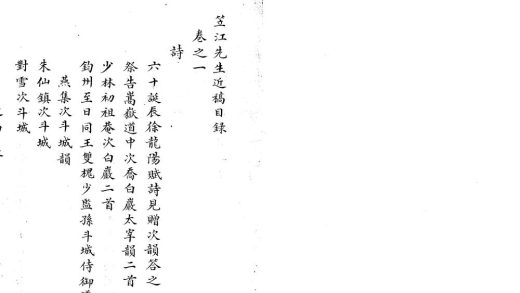 笠江先生近稿目錄
卷之一
詩
六十誕辰徐龍陽賦詩見贈次韻答之
祭告嵩嶽道中次喬白巖太宰韻二首
少林初祖菴次白巖二首
鈞州至日同王雙槐少監孫斗城侍御
燕集次斗城韻
朱仙鎮次斗城
對雪次斗城